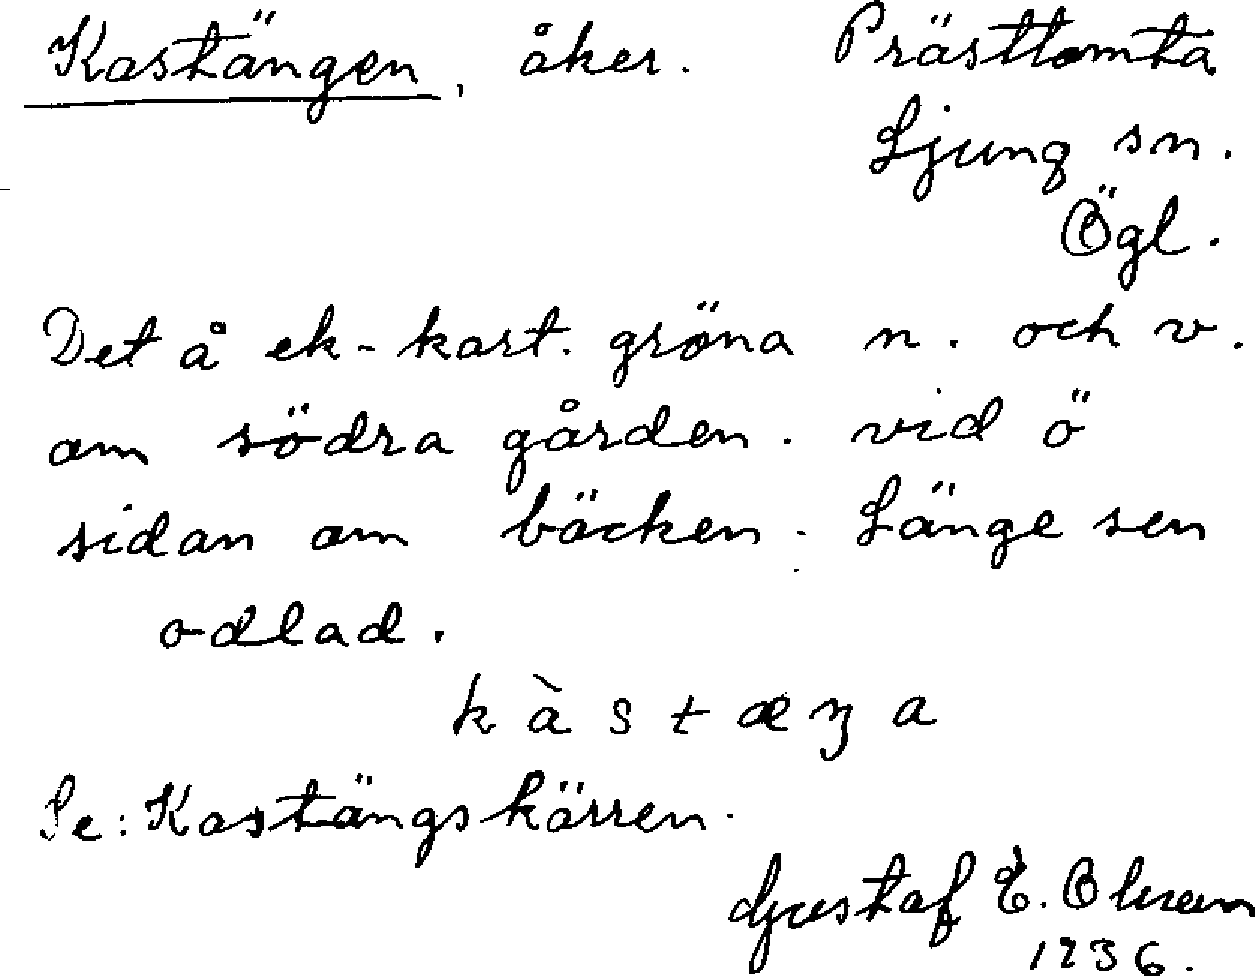 Kastängen, åker. Prästtomta
Ljung sn.
Ögl.
Det å ek-kart. gröna n. och v.
om södra gården. vid ö
sidan om bäcken. Länge sen
odlad.
kàstæŋa
Se: Kastängskärren.
Gustaf E.
1936.